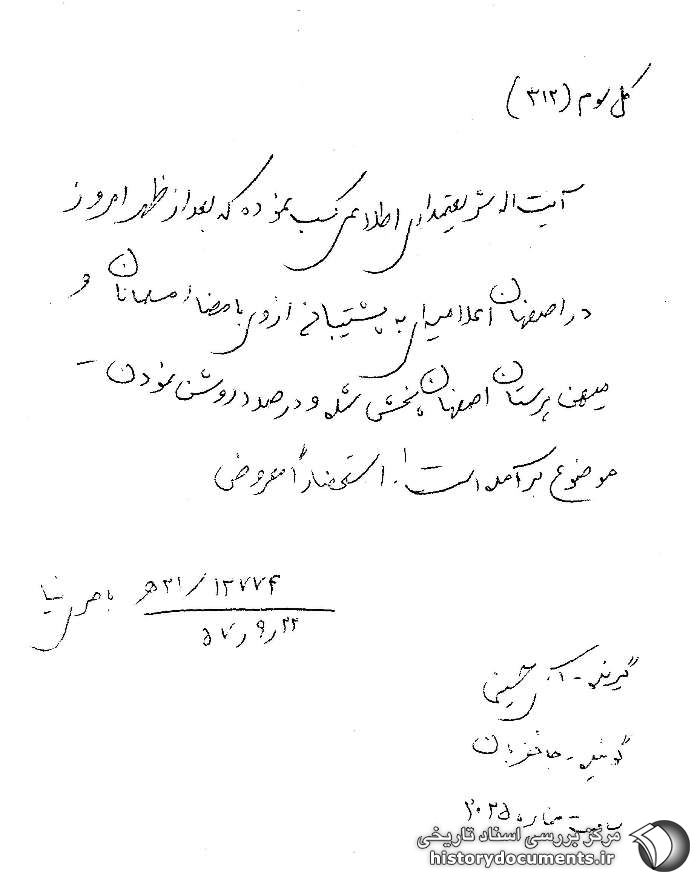 کل سوم (۳۱۲)
آیت اله شریعتمداری اطلاعی کسب نموده که بعد از ظهر امروز
در اصفهان اعلامیه‌ای به پشتیبانی از وی با امضاء مسلمانان و
میهن پرستان اصفهان پخش شده و در صدد روشن نمودن -
موضوع بر آمده است. استحضاراً معروض
۲۱/۱۲۷۷۴هـ
۵۷٫۹٫۲۲
گیرنده - حسینی
گوینده - جانقربان
ساعت - شماره ۲۰۲۵
مرکز بررسی اسناد تاریخی
historydocuments.ir